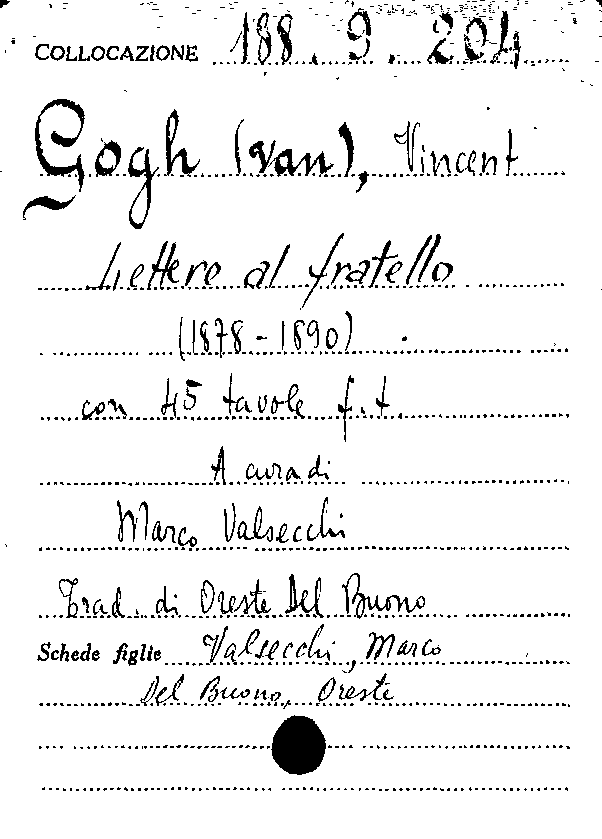 COLLOCAZIONE 188.9.204
Gogh (van), Vincent
Lettere al fratello
(1878-1890).
con 45 tavole f.t.
A cura di
Marco Valsecchi
Trad. di Oreste Del Buono
Schede figlie Valsecchi, Marco
Del Buono, Oreste